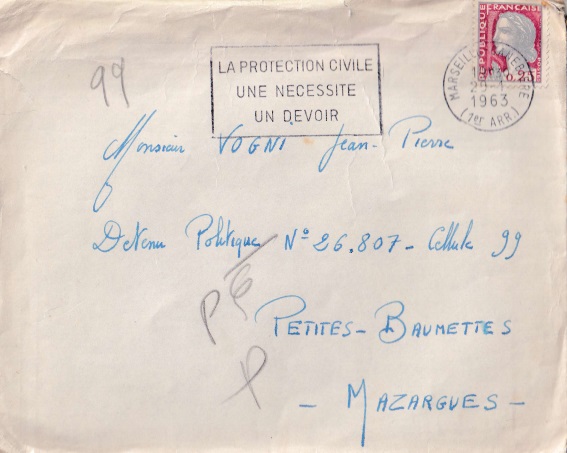 RÉPUBLIQUE FRANÇAISE
99
LA PROTECTION CIVILE
UNE NECESSITE
UN DEVOIR
MARSEILLE
1963
(1er ARR.)
Monsieur VOGNI Jean-Pierre
Detenu Politique N° 26.807 - Cellule 99
P 6
PETITES - BAUMETTES
- MAZARGUES -